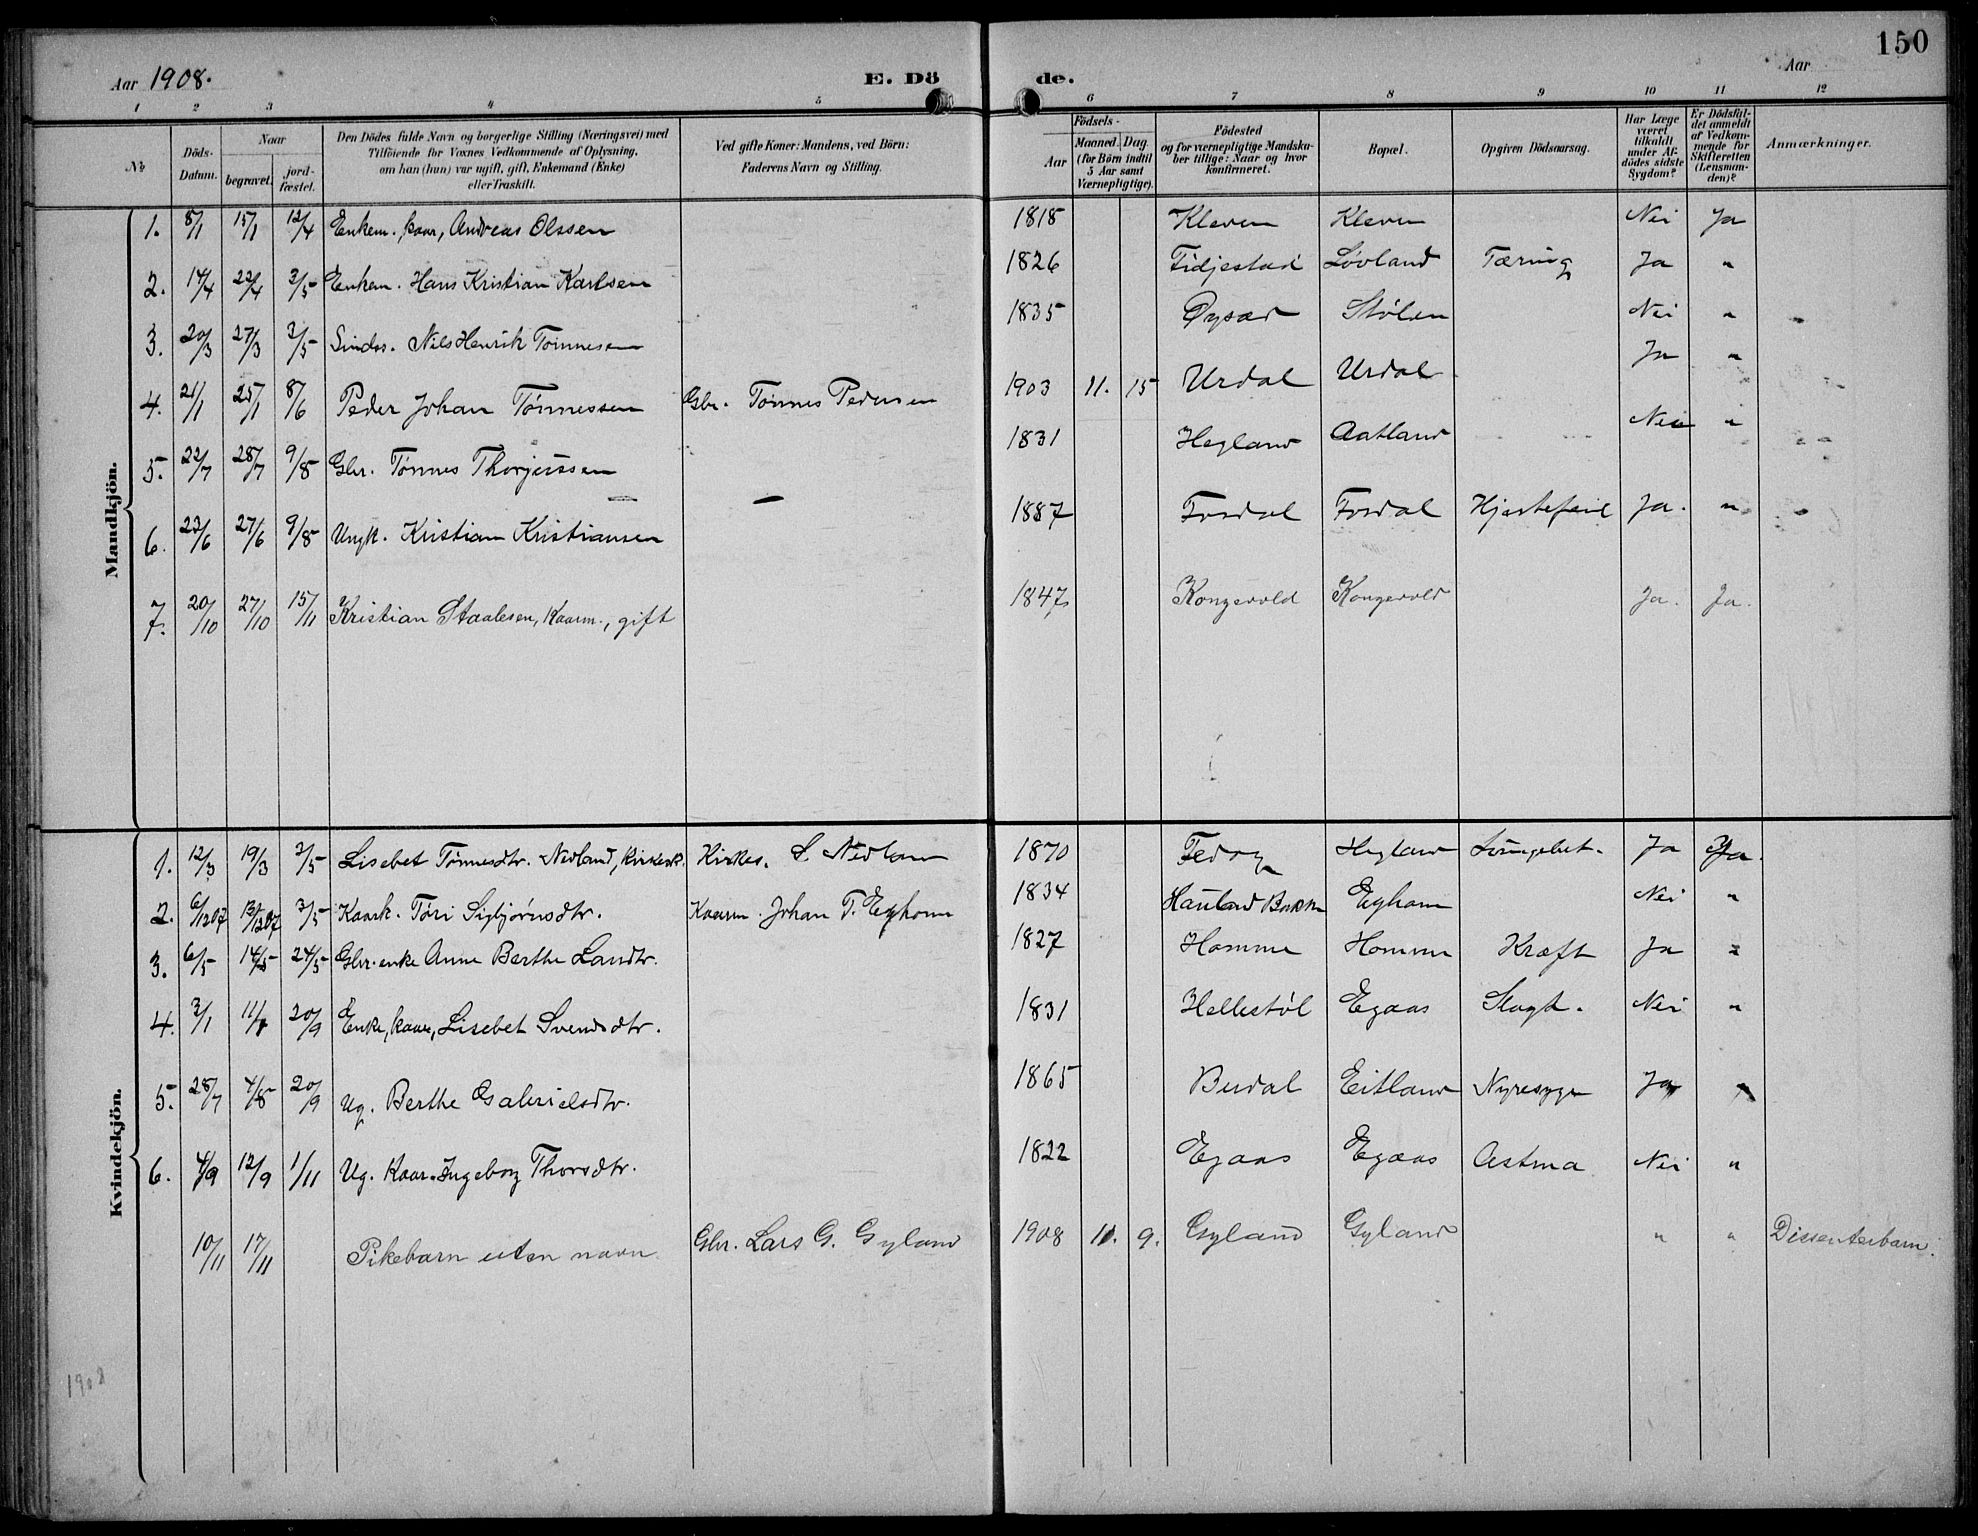 150
Aar 1908. E. Dö de. Aar
1 2 3 4 5 6 7 8 9 10 11 12
No Döds-Datum. Naar begravet. jord-fæstet. Den Dödes fulde Navn og borgerlige Stilling (Næringsvei) med Tilföiende for Voxnes Vedkommende af Oplysning, om han (hun) var ugift, gift, Enkemand (Enke) eller Fraskilt. Ved gifte Koner: Mandens, ved Börn: Faderens Navn og Stilling. Födsels- Aar Maaned. Dag. (for Börn indtil 5 Aar samt Værnepligtige). Födested og for værnepligtige Mandska-ber tillige: Naar og hvor konfirmeret. Bopæl. Opgiven Dödsaarsag. Har Læge været tilkaldt under Af-dödes sidste Sygdom? Er Dödsfal-det anmeldt af Vedkom-mende for Skifteretten (Lensman-den)? Anmærkninger.
Mandkjön.
1. 8/1 15/1 12/4 Enkem., kaar, Andreas Olssen 1818 Kleven Kleven Nei Ja
2. 14/4 22/4 3/5 Enkem. Hans Kristian Karlsen 1826 Fidjestad Løvland Tæring Ja "
3. 20/3 27/3 3/5 Sindss. Nils Henrik Tønnesen 1835 Øysæd Stølen Nei "
4. 21/1 25/1 8/6 Peder Johan Tønnessen Gbr. Tønnes Pedersen 1903 11. 15 Urdal Urdal Ja "
5. 22/7 28/7 9/8 Gbr. Tønnes Thorjussen — 1831 Hegland Aatland Nei "
6. 23/6 27/6 9/8 Ungk. Kristian Kristiansen 1887 Fosdal Fosdal Hjertefeil Ja. "
7. 20/10 27/10 15/11 Kristian Staalesen, Kaarm., gift 1847 Kongevold Kongevold Ja. Ja.
Kvindekjön.
1. 12/3 19/3 3/5 Lisebet Tønnesdtr. Nedland, kirkesk. Kirkes. S. Nedland 1870 Fedog Hegland Lungebet. Ja Ja.
2. 6/12 07 13/12 07 3/5 Kaark. Tøri Sigbjørnsdtr. Kaarm. Johan T. Eghom 1834 Hauland Bakke Eghom Nei "
3. 6/5 14/5 24/5 Gbr.enke Anne Berthe Larsdtr. 1827 Homme Homme Kræft Ja "
4. 3/1 11/1 20/9 Enke, kaar, Lisebet Svendsdtr. 1831 Hellestøl Egaas Slagt. Nei "
5. 28/7 4/8 20/9 Ug. Berthe Gabrielsdtr. 1865 Budal Eitland Nyresyge Ja "
6. 4/9 12/9 1/11 Ug. Kaar. Ingeborg Thorsdtr. 1822 Egaas Egaas Astma Nei "
10/11 17/11 Pikebarn uten navn Gbr. Lars G. Gyland 1908 11. 9. Gyland Gyland " " Dissenterbarn.
1908